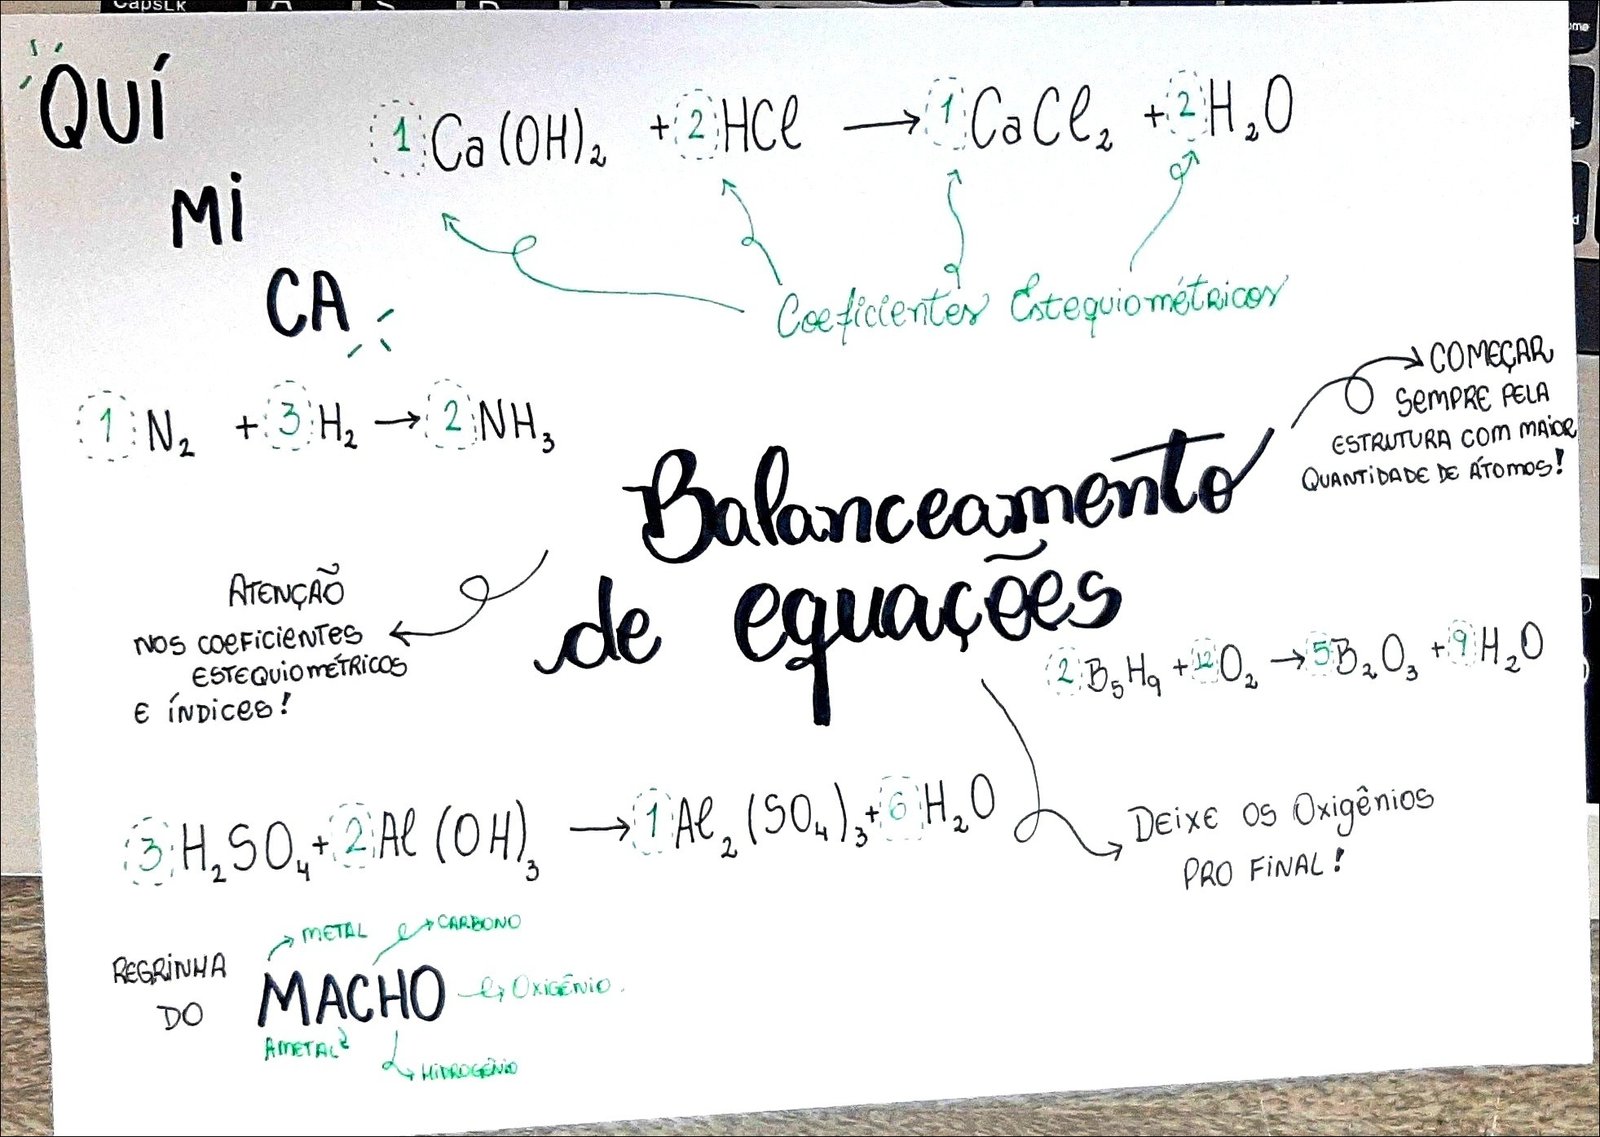 CapsLK
QUÍ
MI
CA
1 Ca(OH)₂ + 2 HCl → 1 CaCl₂ + 2 H₂O
Coeficientes Estequiométricos
1 N₂ + 3 H₂ → 2 NH₃
COMEÇAR
SEMPRE PELA
ESTRUTURA COM MAIOR
QUANTIDADE DE ÁTOMOS!
Balanceamento
de equações
ATENÇÃO
NOS COEFICIENTES
ESTEQUIOMÉTRICOS
E ÍNDICES!
2 B₅H₉ + 12 O₂ → 5 B₂O₃ + 9 H₂O
3 H₂SO₄ + 2 Al(OH)₃ → 1 Al₂(SO₄)₃ + 6 H₂O
DEIXE OS OXIGÊNIOS
PRO FINAL!
REGRINHA
DO
MACHO
METAL
CARBONO
OXIGÊNIO.
AMETAL
HIDROGÊNIO